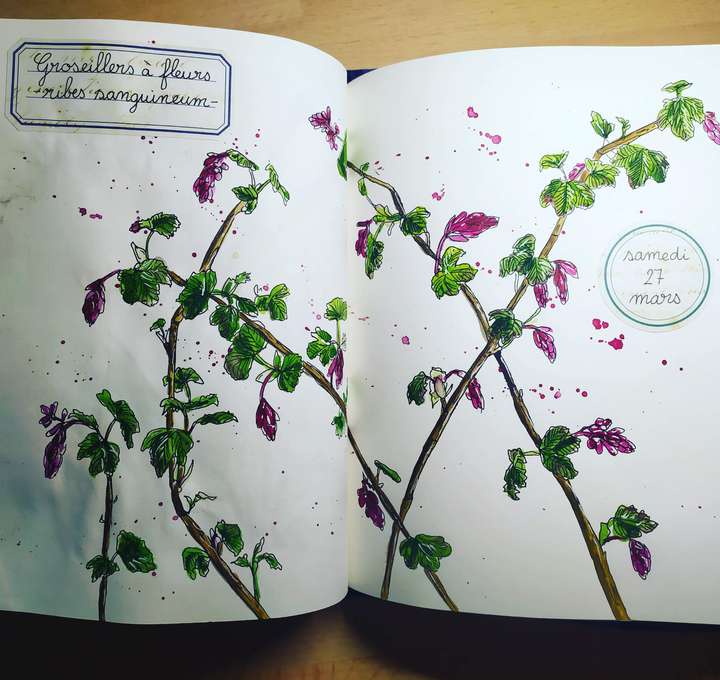 Groseillers à fleurs
ribes sanguineum-
samedi
27
mars